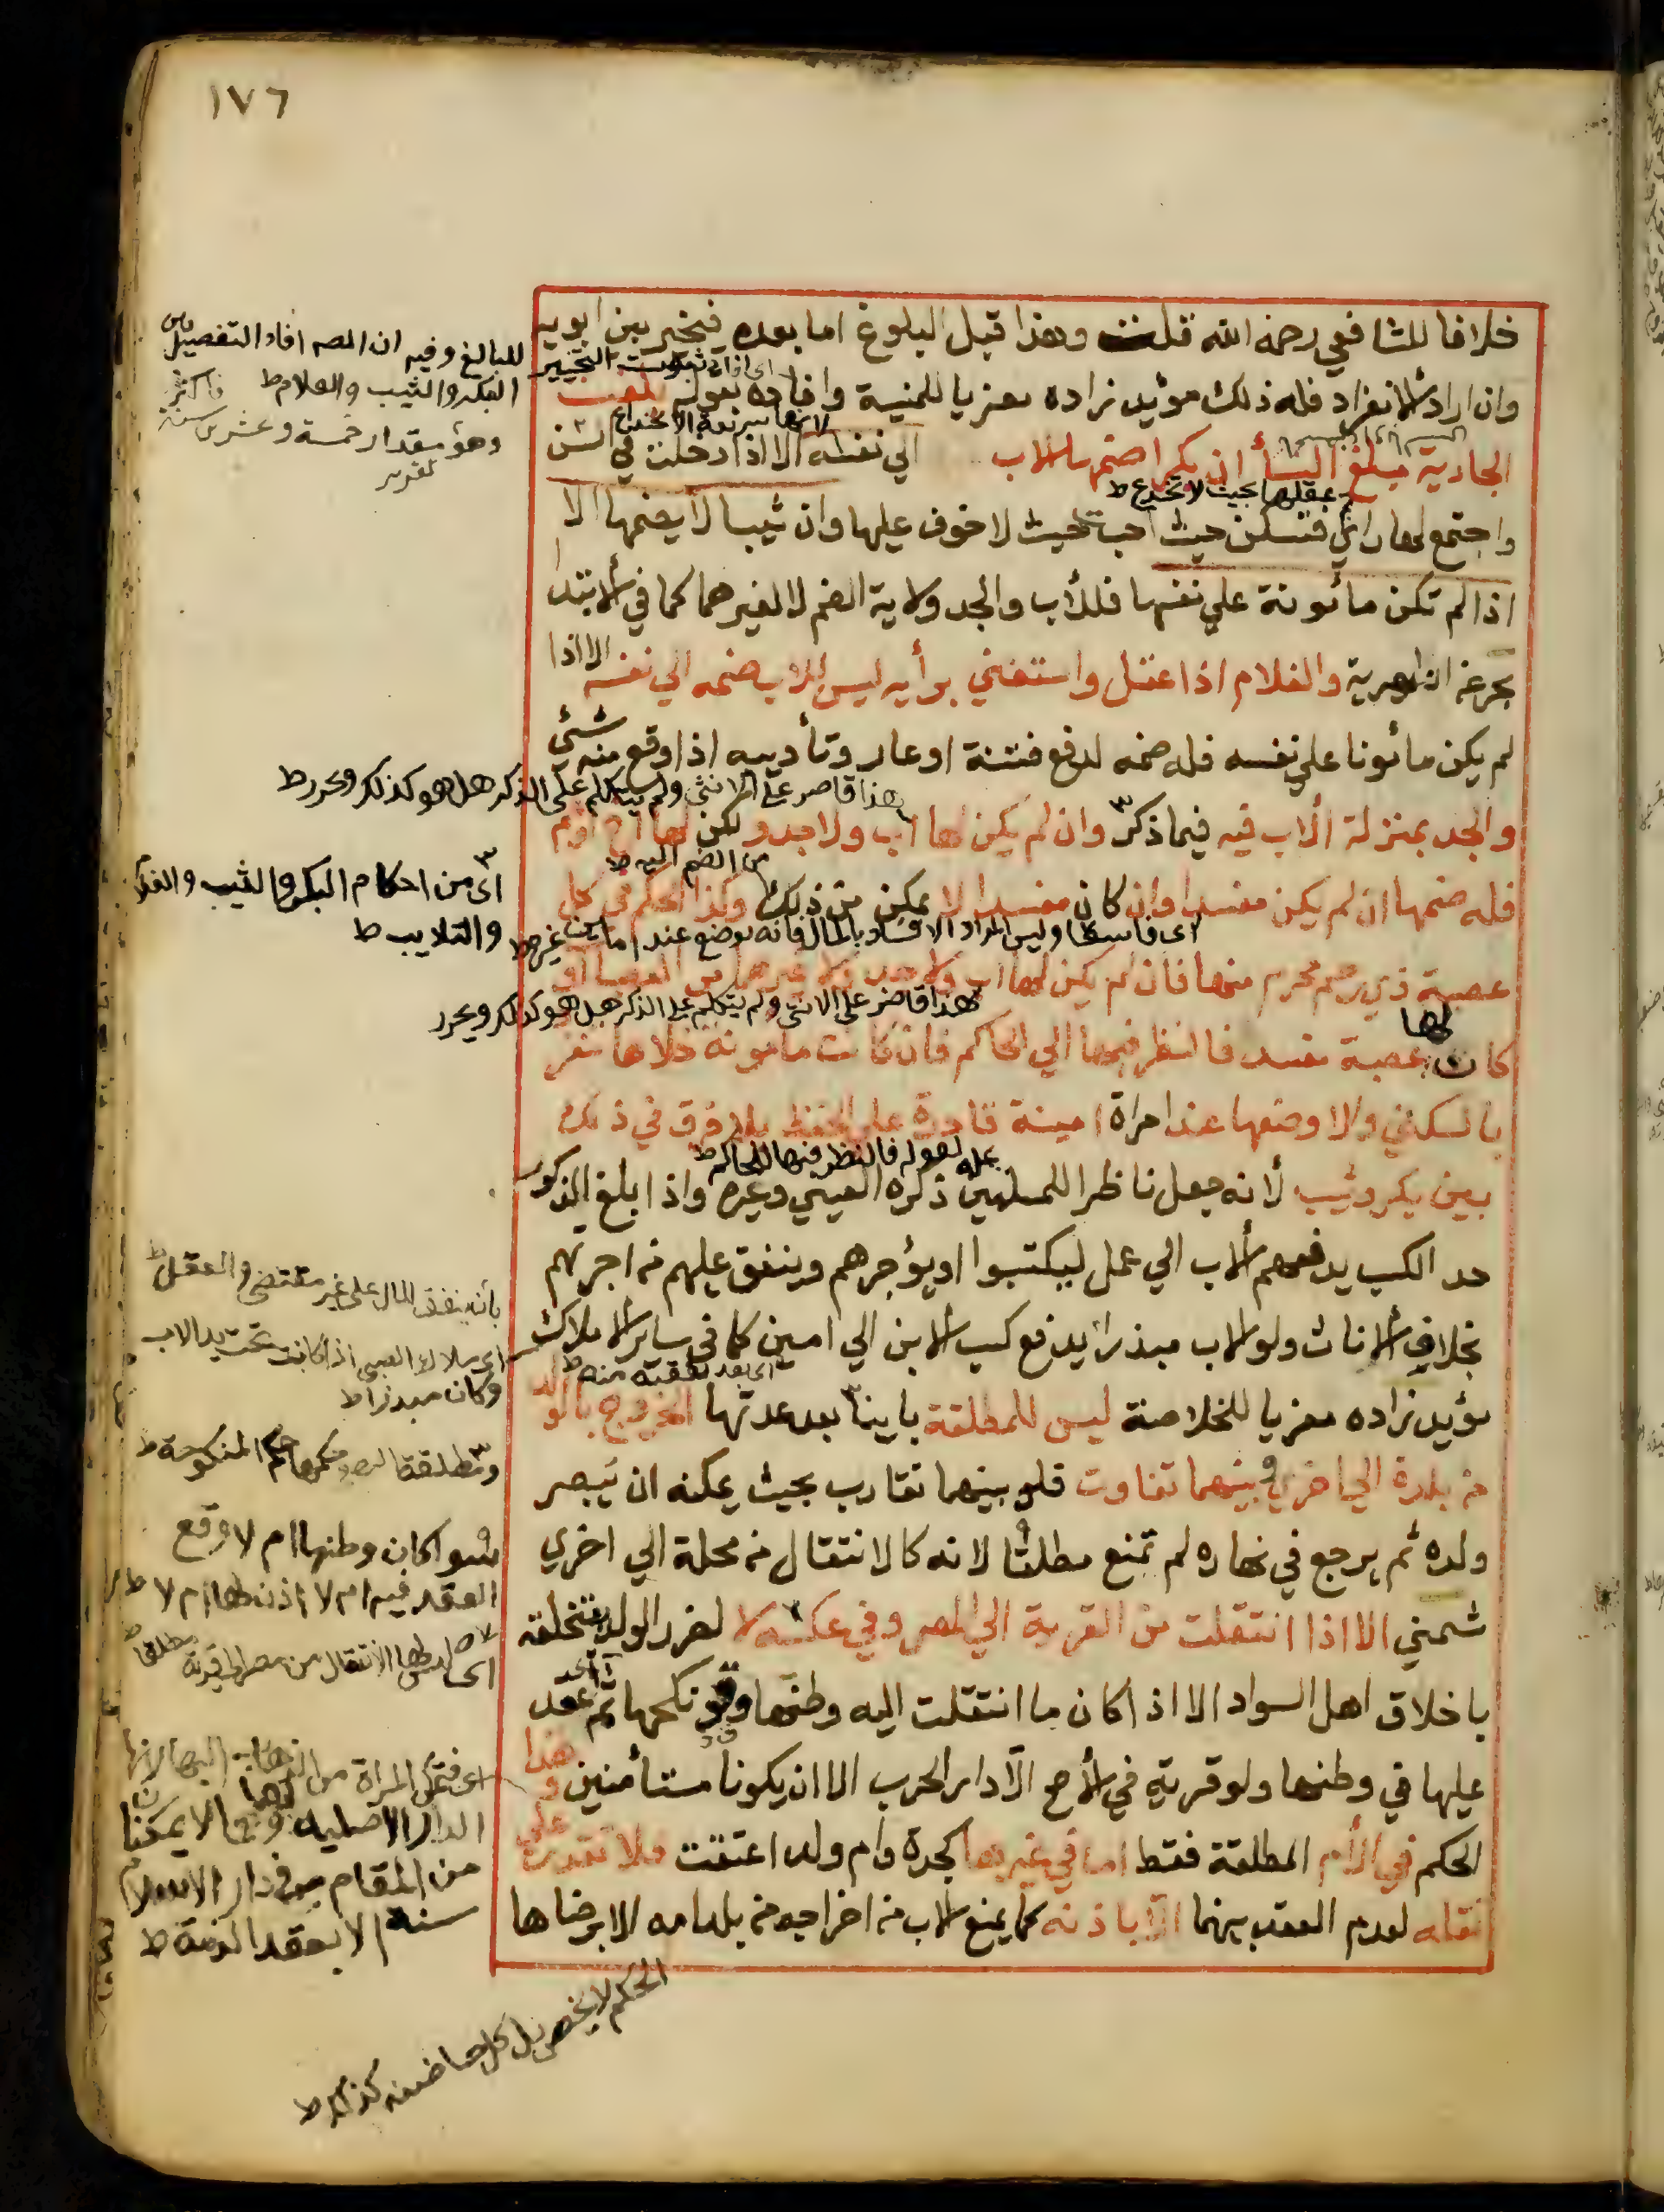 ١٧٦
خلافا للشافعي رحمه الله قلت وهذا قبل البلوغ اما بعده فيخير بين ابويه
وان اراد الانفراد فله ذلك مؤيد زاده معزيا للمنية وافاده بقوله بلغت
الجارية مبلغ النسأ ان بكرا ضمها الاب الي نفسه الا اذا دخلت في السن
واجتمع لها رأي فتسكن حيث احبت حيث لا خوف عليها وان ثيبا لا يضمها الا
اذا لم تكن مأمونة علي نفسها فللأب والجد ولاية الضم لا لغيرهما كما في الابتدا
بحر عن الظهيرية والغلام اذا عقل واستغني برأيه ليس للاب ضمه الي نفسه الا اذا
لم يكن مأمونا علي نفسه فله ضمه لدفع فتنة او عار وتأديبه اذا وقع منه شئي
والجد بمنزلة الاب فيه فيما ذكر وان لم يكن لها اب ولا جد ولكن لها اخ او عم
فله ضمها ان لم يكن مفسدا وان كان مفسدا لا يمكن من ذلك وكذا الحكم في كل
عصبة ذي رحم محرم منها فان لم يكن لها اب ولا جد ولا غيرهما من العصبا او
كان لها عصبة مفسد فالنظر فيها الي الحاكم فان كانت مامونة خلاها تنفرد
بالسكني والا وضعها عند امراة امينة قادرة علي الحفظ بلا فرق في ذلك
بين بكر وثيب لأنه جعل ناظرا للمسلمين ذكره العيني وغيره واذا بلغ الذكور
حد الكسب يدفعهم الاب الي عمل ليكتسبوا او يؤجرهم وينفق عليهم من اجرتهم
بخلاف الاناث ولو الاب مبذرا يدفع كسب الابن الي امين كما في سائر الاملاك
مؤيد زاده معزيا للخلاصة ليس للمطلقة باينا بعد عدتها الخروج بالولد
من بلدة الي اخري وبينهما تفاوت فلو بينهما تقارب بحيث يمكنه ان يبصر
ولده ثم يرجع في نهاره لم تمنع مطلقا لانه كالانتقال من محلة الي اخري
شمني الا اذا انتقلت من القرية الي المصر وفي عكسه لا لضرر الولد بتخلقه
باخلاق اهل السواد الا اذا كان ما انتقلت اليه وطنها وقد نكحها ثم اي عقد
عليها في وطنها ولو قرية في الاصح الا دار الحرب الا ان يكونا مستأمنين وهذا
الحكم في الأم المطلقة فقط اما في غيرها كجدة وام ولد اعتقت فلا تقدر علي
نقله لعدم العقد بينهما الا باذنه كما يمنع الاب من اخراجه من بلد امه الا برضاها
للبالغ وفيه ان المصـ افاد التفصيل بين
البكر والثيب والغلام ط
وهو مقدار خمسة وعشرين سنة فاكثر
اي اذا ثبوت التخيير
لانها سريعة الانخداع
عقلها بحيث لا تخدع ط
هذا قاصر على الانثى ولم يتكلم على الذكر هل هو كذلك ويحرر ط
من الضم اليه ط
اى من احكام البكر والثيب والغلام
والتاديب ط
اى فاسقا وليس المراد الافساد بالمال فانه يوضع عند امين غيره ط
هذا قاصر على الانثى ولم يتكلم على الذكر هل هو كذلك ويحرر
علة لقوله فالنظر فيها للحاكم ط
بأن ينفق المال على غير مقتضى العقل ط
اي املاك الصبي اذا كانت تحت يد الاب
وكان مبذرا ط
اى بعد نفقته منه ط
حكمها حكم المنكوحة ط
سوا كان وطنها ام لا وقع
العقد فيه ام لا اذن لها ام لا ط
اى ليس لها الانتقال من مصر الى قرية مطلقا ط
لانها
الدار الاصلية
من المقام في دار الاسلام
سنة الا بعقد الذمة ط
الحكم لا يخص بل كل حاضنة كذلك ط